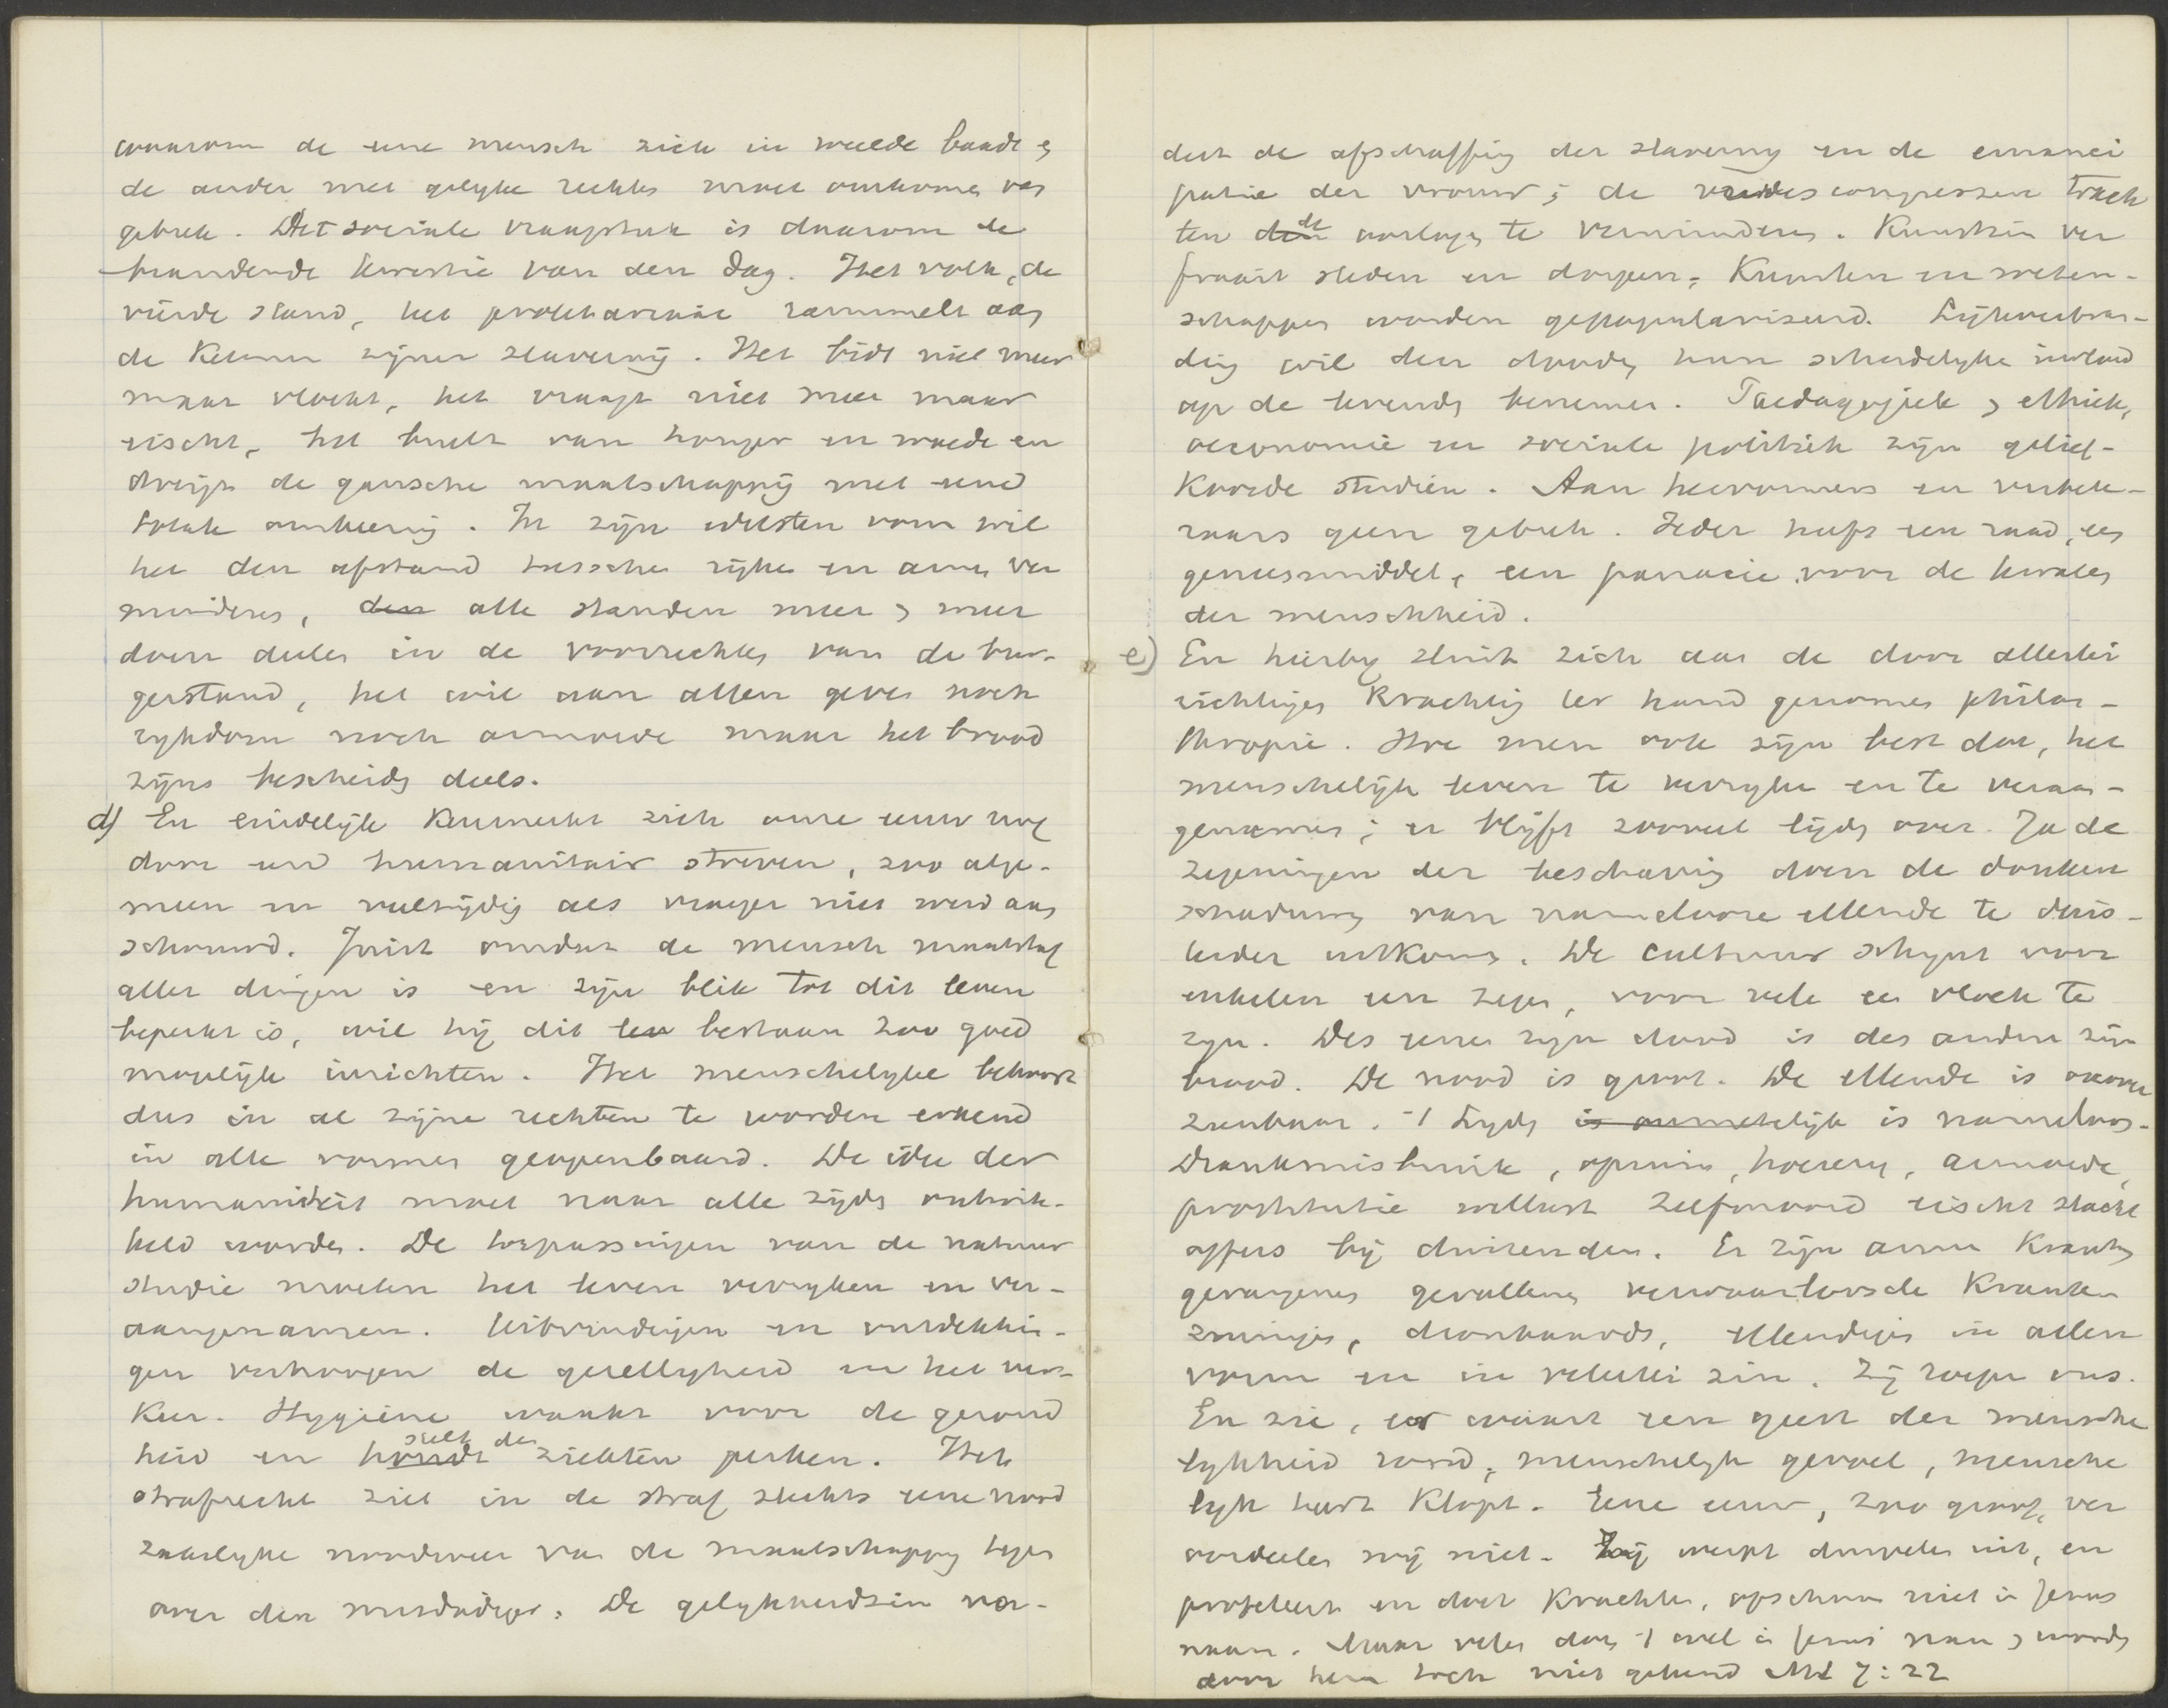 waarom de eene mensch zich in weelde baadt &
de ander met gelijke rechten moet omkomen van
gebrek. Het sociale vraagstuk is daarom de
brandende kwestie van den dag. Het volk, de
vierde stand, het proletariaat rammelt aan
de ketenen zijner slavernij. Het bidt niet meer
maar vloekt, het vraagt niet meer maar
eischt, het brult van honger en woede en
dreigt de gansche maatschappij met eene
totale omkeering. In zijn edelsten vorm wil
het den afstand tusschen rijken en armen ver
minderen, den alle standen meer & meer
doen deelen in de voorrechten van de bur-
gerstand, het wil aan allen geven noch
rykdom noch armoede maar het brood
zijns bescheiden deels.
d) En eindelijk kenmerkt zich onze eeuw nog
door een humanitair streven, zoo alge-
meen en veelzijdig als vroeger niet werd aan
schouwd. Juist omdat de mensch maatstaf
aller dingen is en zijn blik tot dit leven
beperkt is, wil hij dit lev bestaan zoo goed
mogelijk inrichten. Het menschelyke behoort
dus in al zijne rechten te worden erkend
in alle vormen geopenbaard. De idee der
humaniteit moet naar alle zijden ontwik-
keld worden. De toepassingen van de natuur
studie moeten het leven verryken en ver-
aangenamen. Uitvindingen en ontdekkin-
gen verhoogen de gezelligheid en het ver-
keer. Hygiëne waakt voor de gezond
heid en houdt stelt den ziekten perken. Het
strafrecht ziet in de straf slechts eene nood
zakelyke noodweer van de maatschappij tegen
over den misdadiger. De gelykheidszin vor-
dert de afschaffing der slaverny en de emanci
patie der vrouw; de vredescongressen trach
ten den de oorlogen te verminderen. Kunstzin ver
fraait steden en dorpen; Kunsten en weten-
schappen worden gepopulariseerd. Lijkverbran-
ding wil den dooden hun schadelyke invloed
op de levenden benemen. Paedagogiek, ethiek,
oeconomie en sociale politiek zijn gelief-
koosde studiën. Aan hervormers en verbete-
raars geen gebrek. Ieder heeft een raad, een
geneesmiddel, een panacie voor de kwalen
der menschheid.
e) En hierby sluit zich aan de door allerlei
richtingen krachtig ter hand genomen philan-
thropie. Hoe men ook zijn best doe, het
menschelijk leven te verryken en te veraan-
genamen; er blijft zooveel lijden over. Ja de
zegeningen der beschaving doen de donkere
schaduwen van namelooze ellende te duis-
terder uitkomen. De cultuur schynt voor
enkelen een zegen, voor vele een vloek te
zyn. Des eenen zyn dood is des anderen zijn
brood. De nood is groot. De ellende is onover
zienbaar. 't Lyden is onmetelijk is nameloos.
Drankmisbruik, opium, hoerery, armoede,
prostitutie wellust zelfmoord eischt slacht
offers bij duizenden. Er zijn arme kranken
gevangenen gevallenen verwaarloosde kranken
zinnigen, dronkaards, ellendigen in allen
vorm en in velerlei zin. Zij roepen ons.
En zie, er waart een geest der mensche
lykheid rond, menschelyk gevoel, mensche
lyk hart klopt. Eene eeuw, zoo groot, ver
oordeelen wij niet. Zij werpt duivelen uit, en
profeteert en doet krachten, ofschoon niet in Jezus
naam. Maar velen doen 't wel in Jezus' naam & worden
door hem toch niet gekend Mt 7:22